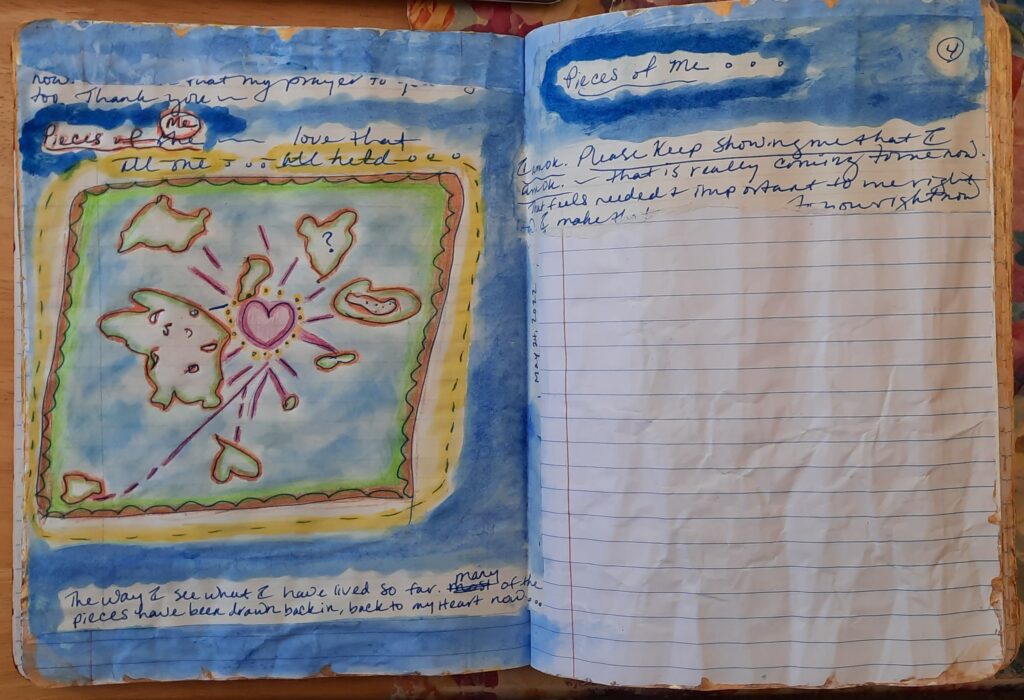 now. that my prayer to
too. Thank you ~
Pieces of the Me ~ love that
all one . . . all held . . .
?
The way I see what I have lived so far. most many of the
pieces have been drawn back in, back to my Heart now...
Pieces of Me . . .
4
I am ok. Please Keep showing me that I
am ok. ~ that is really coming to me now.
that feels needed & important to me right
I make that
to now right now
May 24, 2022